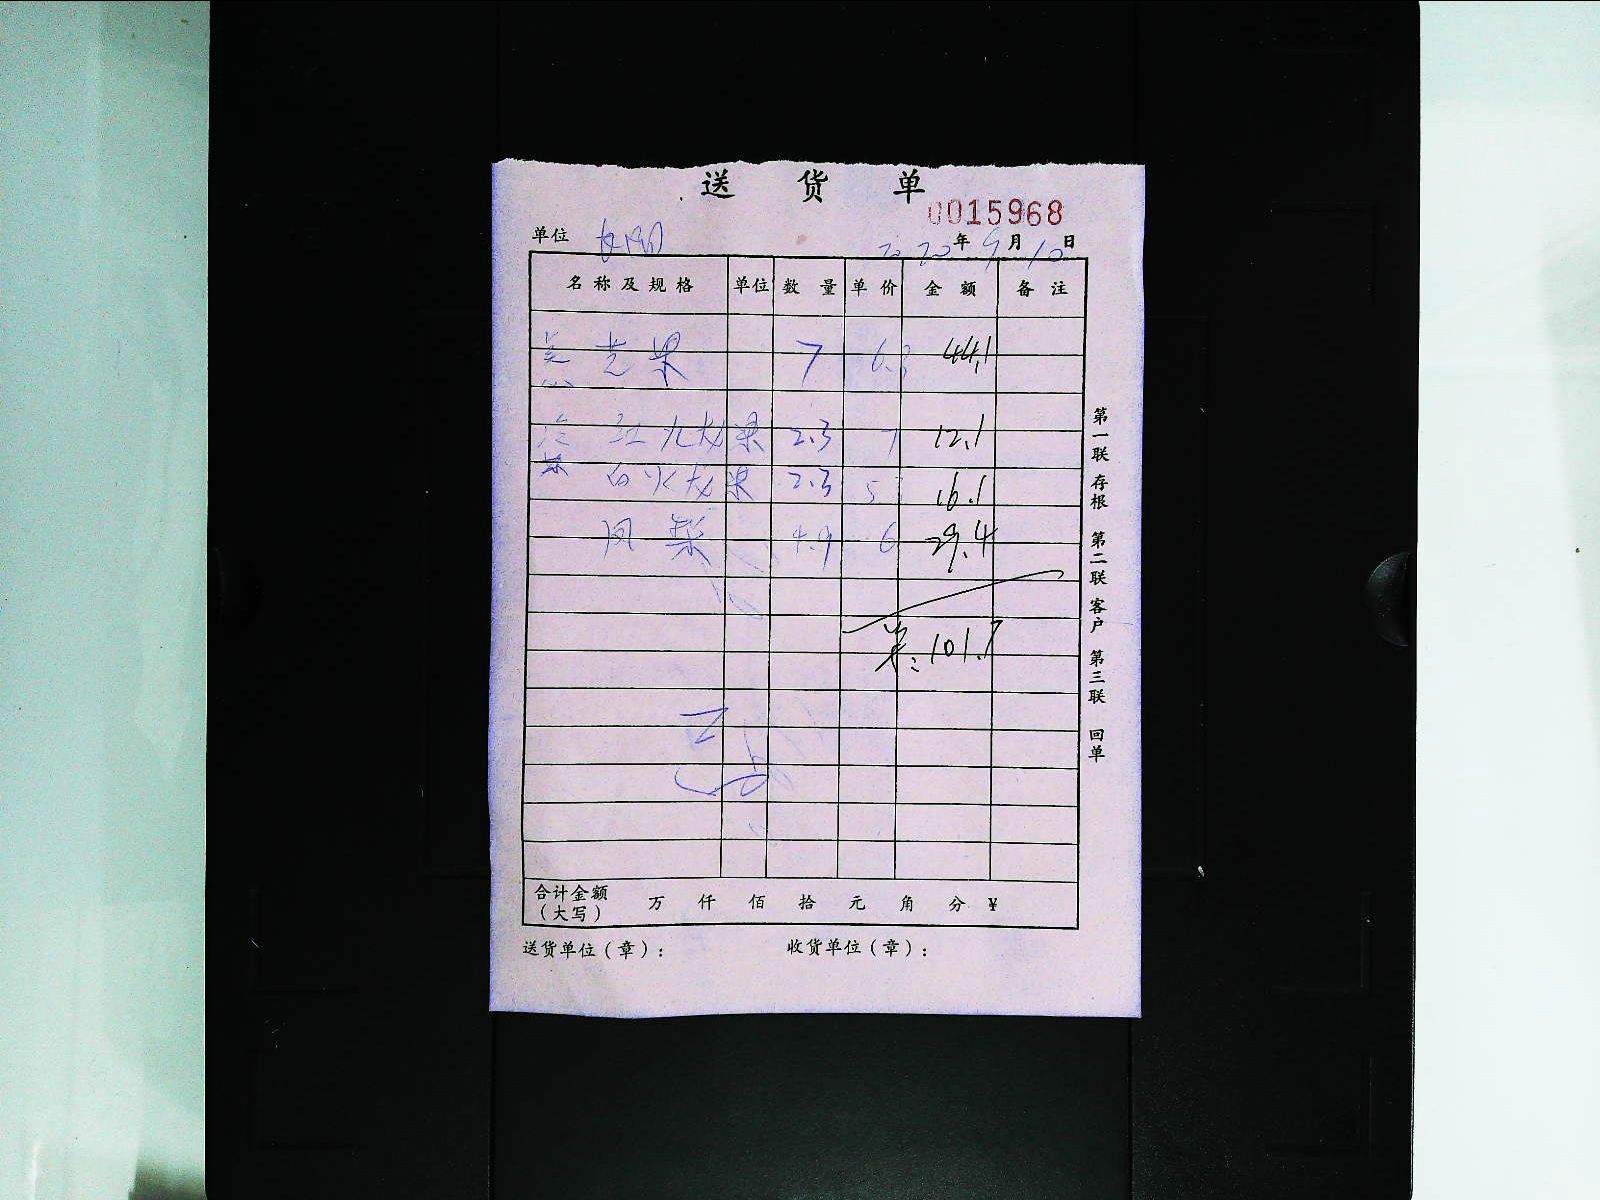 送货单
0015968
单位 2020年9月10日
名称及规格 单位 数量 单价 金额 备注
芒果 7 6.3 44.1
红火龙果 2.3 7 12.1
白火龙果 2.3 5 16.1
凤梨 4.9 6 29.4
101.7
合计金额（大写） 万 仟 佰 拾 元 角 分 ¥
送货单位（章）： 收货单位（章）：
第一联 存根 第二联 客户 第三联 回单